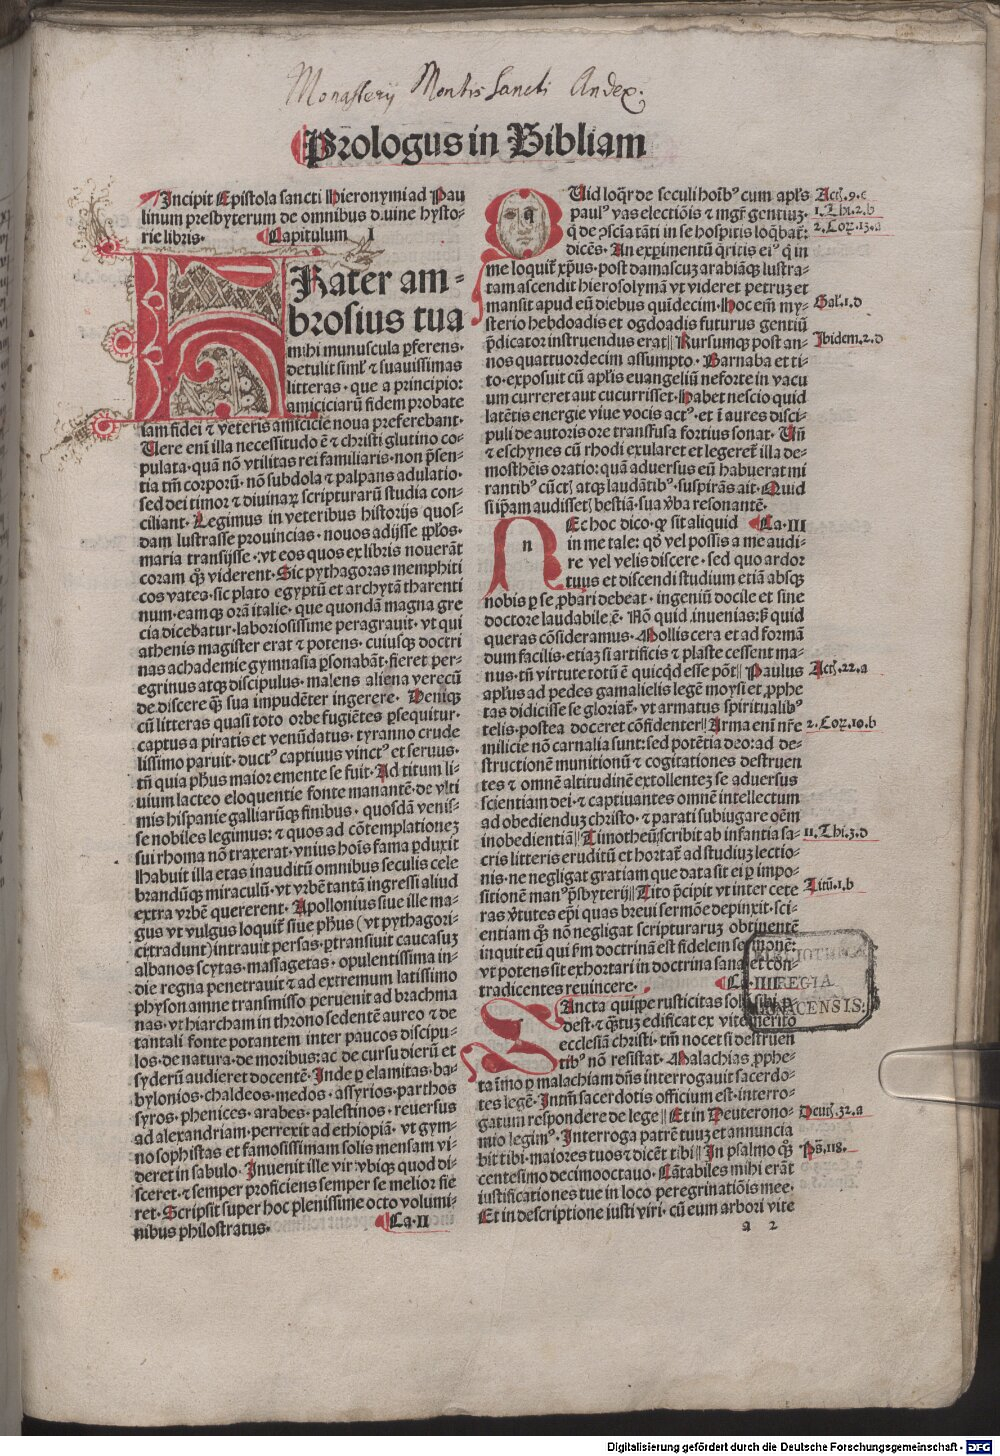 Monasterij Montis Sancti Andex.
Prologus in Bibliam
Incipit Epistola sancti Hieronymi ad Pau
linum presbyterum de omnibus diuine hysto-
rie libris. Capitulum I
FRater am-
brosius tua
mihi munuscula ꝑferens.
detulit siml̃ ⁊ suauissimas
litteras. que a principio:
amiciciarũ fidem probate
iam fidei ⁊ veteris amicicie noua preferebant.
Uere enĩ illa necessitudo ẽ ⁊ christi glutino co-
pulata. quã nõ vtilitas rei familiaris. non p̃sen-
tia tm̃ corporũ. nõ subdola ⁊ palpans adulatio.
sed dei timor ⁊ diuinaꝝ scripturarũ studia con-
ciliant. Legimus in veteribus historijs quos-
dam lustrasse prouincias. nouos adijsse pp̃los.
maria transijsse. vt eos quos ex libris nouerãt
coram qꝫ̃ viderent. Sic pythagoras memphiti
cos vates. sic plato egyptũ et archytã tharenti
num. eamqꝫ orã italie. que quondã magna gre
cia dicebatur. laboriosissime peragrauit. vt qui
athenis magister erat ⁊ potens. cuiusqꝫ doctri
nas achademie gymnasia ꝑsonabãt. fieret per-
egrinus atqꝫ discipulus. malens aliena verecũ
de discere qꝫ̃ sua impudẽter ingerere. Deniqꝫ
cũ litteras quasi toto orbe fugiẽtes ꝑsequitur.
captus a piratis et venũdatus. tyranno crude
lissimo paruit. ductꝰ captiuus vinctꝰ et seruus.
tñ quia ph̃us maior emente se fuit. Ad titum li-
uium lacteo eloquentie fonte manantẽ. de vlti
mis hispanie galliarũqꝫ finibus. quosdã venis-
se nobiles legimus: ⁊ quos ad cõtemplationeꝫ
sui rhoma nõ traxerat. vnius hoĩs fama ꝑduxit
Habuit illa etas inauditũ omnibus seculis cele
brandũqꝫ miraculũ. vt vrbẽ tantã ingressi aliud
extra vrbẽ quererent. Apollonius siue ille ma-
gus vt vulgus loquit̃ siue ph̃us (vt pythagori-
ci tradunt) intrauit persas. ꝑtransiuit caucasuꝫ
albanos scytas. massagetas. opulentissima in-
die regna penetrauit ⁊ ad extremum latissimo
physon amne transmisso peruenit ad brachma
nas. vt hiarcham in throno sedentẽ aureo ⁊ de
tantali fonte potantem inter paucos discipu-
los. de natura. de moribus: ac de cursu dierũ et
syderũ audieret docentẽ. Inde ꝑ elamitas. ba-
bylonios. chaldeos. medos. assyrios. parthos
syros. phenices. arabes. palestinos. reuersus
ad alexandriam. perrexit ad ethiopiã. vt gym-
nosophistas et famosissimam solis mensam vi-
deret in sabulo. Inuenit ille vir vbiqꝫ quod di-
sceret. ⁊ semper proficiens semper se melior fie
ret. Scripsit super hoc plenissime octo volumi-
nibus philostratus. Ca. II
QUid loqr̃ de seculi hoĩbꝰ cum apl̃s
paulꝰ vas electiõis ⁊ mgr̃ gentiuꝫ.
q̃ de ꝓsciã tãti in se hospitis loqbat̃:
dicẽs. An exꝑimentũ qritis eiꝰ q̃ in
me loquit̃ xp̃us. post damascuꝫ arabiãqꝫ lustra-
tam ascendit hierosolymã vt videret petruꝫ et
mansit apud eũ diebus quĩdecim. Hoc em̃ my-
sterio hebdoadis et ogdoadis futurus gentiũ
p̃dicator instruendus erat Rursumqꝫ post an-
nos quattuordecim assumpto. Barnaba et ti-
to. exposuit cũ apl̃is euangeliũ ne forte in vacu
um curreret aut cucurrisset. Habet nescio quid
latẽtis energie viue vocis actꝰ. et ĩ aures disci-
puli de autoris ore transfusa fortius sonat. Vñ
⁊ eschynes cũ rhodi exularet et legeret̃ illa de-
mosthẽis oratio: quã aduersus eũ habuerat mi
rantibꝰ cũct̃ atqꝫ laudãtibꝰ. suspirãs ait. Quid
si ip̃am audisset̃ bestiã. sua v̓ba resonantẽ.
NEc hoc dico. qꝫ sit aliquid Ca. III
in me tale: qd̃ vel possis a me audi-
re vel velis discere. sed quo ardor
tuus et discendi studium etiã absqꝫ
nobis ꝑ se ꝓbari debeat. ingeniũ docile et sine
doctore laudabile ẽ. Nõ quid inuenias: sꝫ quid
queras cõsideramus. Mollis cera et ad formã
dum facilis. etiaꝫ si artificis ⁊ plaste cessent ma-
nus. tñ virtute totũ ẽ quicqd esse põt Paulus
apl̃us ad pedes gamalielis legẽ moysi et ꝓphe
tas didicisse se gloriat̃. vt armatus spiritualibꝰ
telis. postea doceret cõfidenter Arma enĩ nr̃e
milicie nõ carnalia sunt: sed potẽtia deo: ad de-
structionẽ munitionũ ⁊ cogitationes destruen
tes ⁊ omnẽ altitudinẽ extollenteꝫ se aduersus
scientiam dei. ⁊ captiuantes omnẽ intellectum
ad obedienduꝫ christo. ⁊ parati subiugare oẽm
inobedientiã Timotheũ scribit ab infantia sa-
cris litteris eruditũ et hortat̃ ad studiuꝫ lectio-
nis. ne negligat gratiam que data sit ei ꝑ impo-
sitionẽ manꝰ p̃sbyterij Tito p̃cipit vt inter cete
ras v̓tutes ep̃i quas breui sermõe depinxit. sci-
entiam qꝫ̃ nõ negligat scripturaruꝫ obtinentẽ
inquit eũ qui s̃m doctrinã est fidelem sermonẽ:
vt potens sit exhortari in doctrina sana et con-
tradicentes reuincere. Ca. IIII
SAncta quippe rusticitas soli sibi ꝓ
dest. ⁊ q̃tuꝫ edificat ex vite merito
ecclesiã christi. tm̃ nocet si destruen
tibꝰ nõ resistat. Malachias ꝓphe-
ta ĩmo ꝑ malachiam dñs interrogauit sacerdo-
tes legẽ. Intm̃ sacerdotis officium est. interro-
gatum respondere de lege Et in Deuterono-
mio legimꝰ. Interroga patrẽ tuuꝫ et annuncia
bit tibi. maiores tuos ⁊ dicẽt tibi In psalmo qꝫ̃
centesimo decimooctauo. Cãtabiles mihi erãt
iustificationes tue in loco peregrinatiõis mee.
Et in descriptione iusti viri. cũ eum arbori vite
a 2
Act̃. 9. c
1. Thi. 2. b
2. Coꝝ. 13. a
Gal̃. 1. d
Ibidem. 2. d
Act̃. 22. a
2. Coꝝ. 10. b
II. Thi. 3. d
Titũ. 1. b
Deut̃. 32. a
Ps̃. 118.
BIBLIOTHECA
REGIA
MONACENSIS.
Digitalisierung gefördert durch die Deutsche Forschungsgemeinschaft - DFG